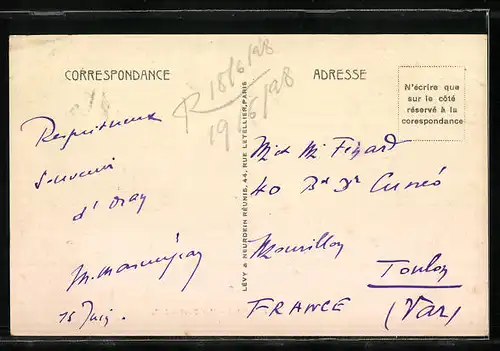 CORRESPONDANCE
ADRESSE
N'écrire que
sur le côté
réservé à la
corespondance
R 18/6/28
19/6/28
Respectueux
souvenir
d'Oran
15 Juin.
LÉVY & NEURDEIN RÉUNIS, 44, RUE LETELLIER, PARIS
M et Me
40 Bd Dr Cunéo
Mourillon
Toulon
FRANCE (Var)